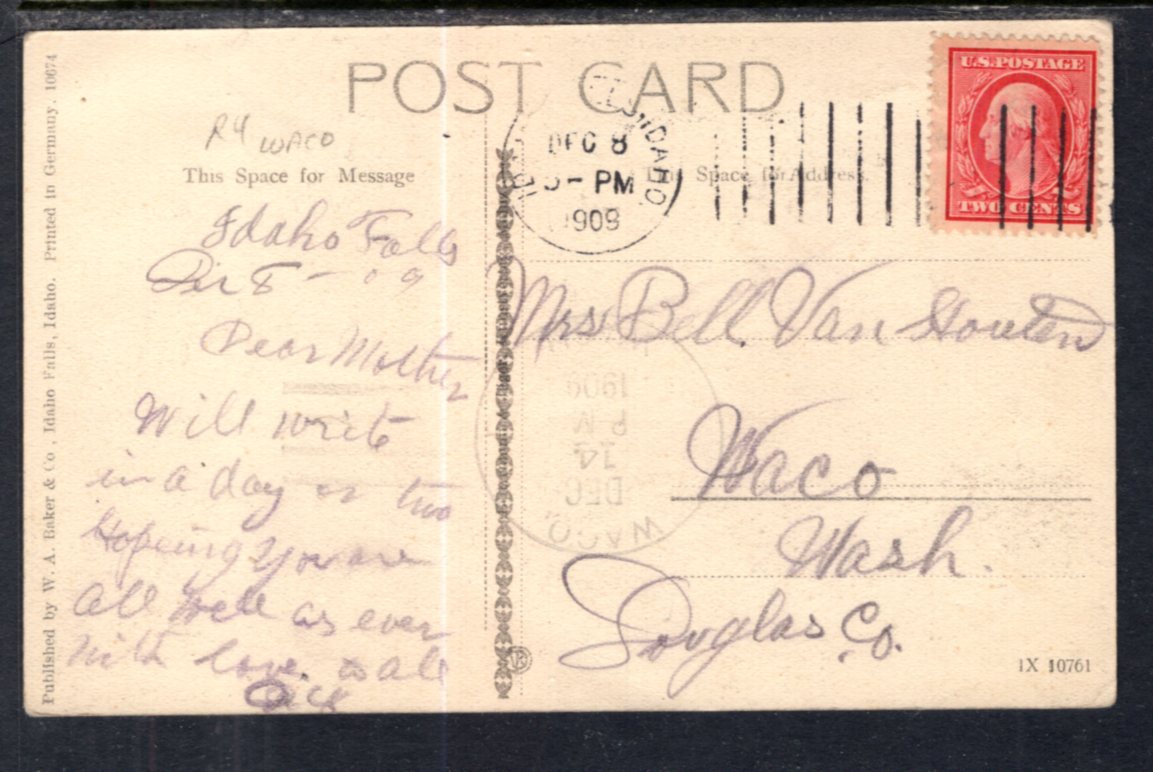 POST CARD
R4 WACO
This Space for Message
Idaho Falls
Dec 8 - 09
Dear Mother
Will write
in a day or two
Hopeing You are
all well as ever
with love to all
Dick
Published by W. A. Baker & Co, Idaho Falls, Idaho. Printed in Germany. 10674
IDAHO
DEC 8
- PM
1909
This Space for Address.
U.S. POSTAGE
TWO CENTS
Mrs Bell Van Houten
Waco
Wash.
Douglas Co.
WACO,
DEC
14
P M
1909
1X 10761